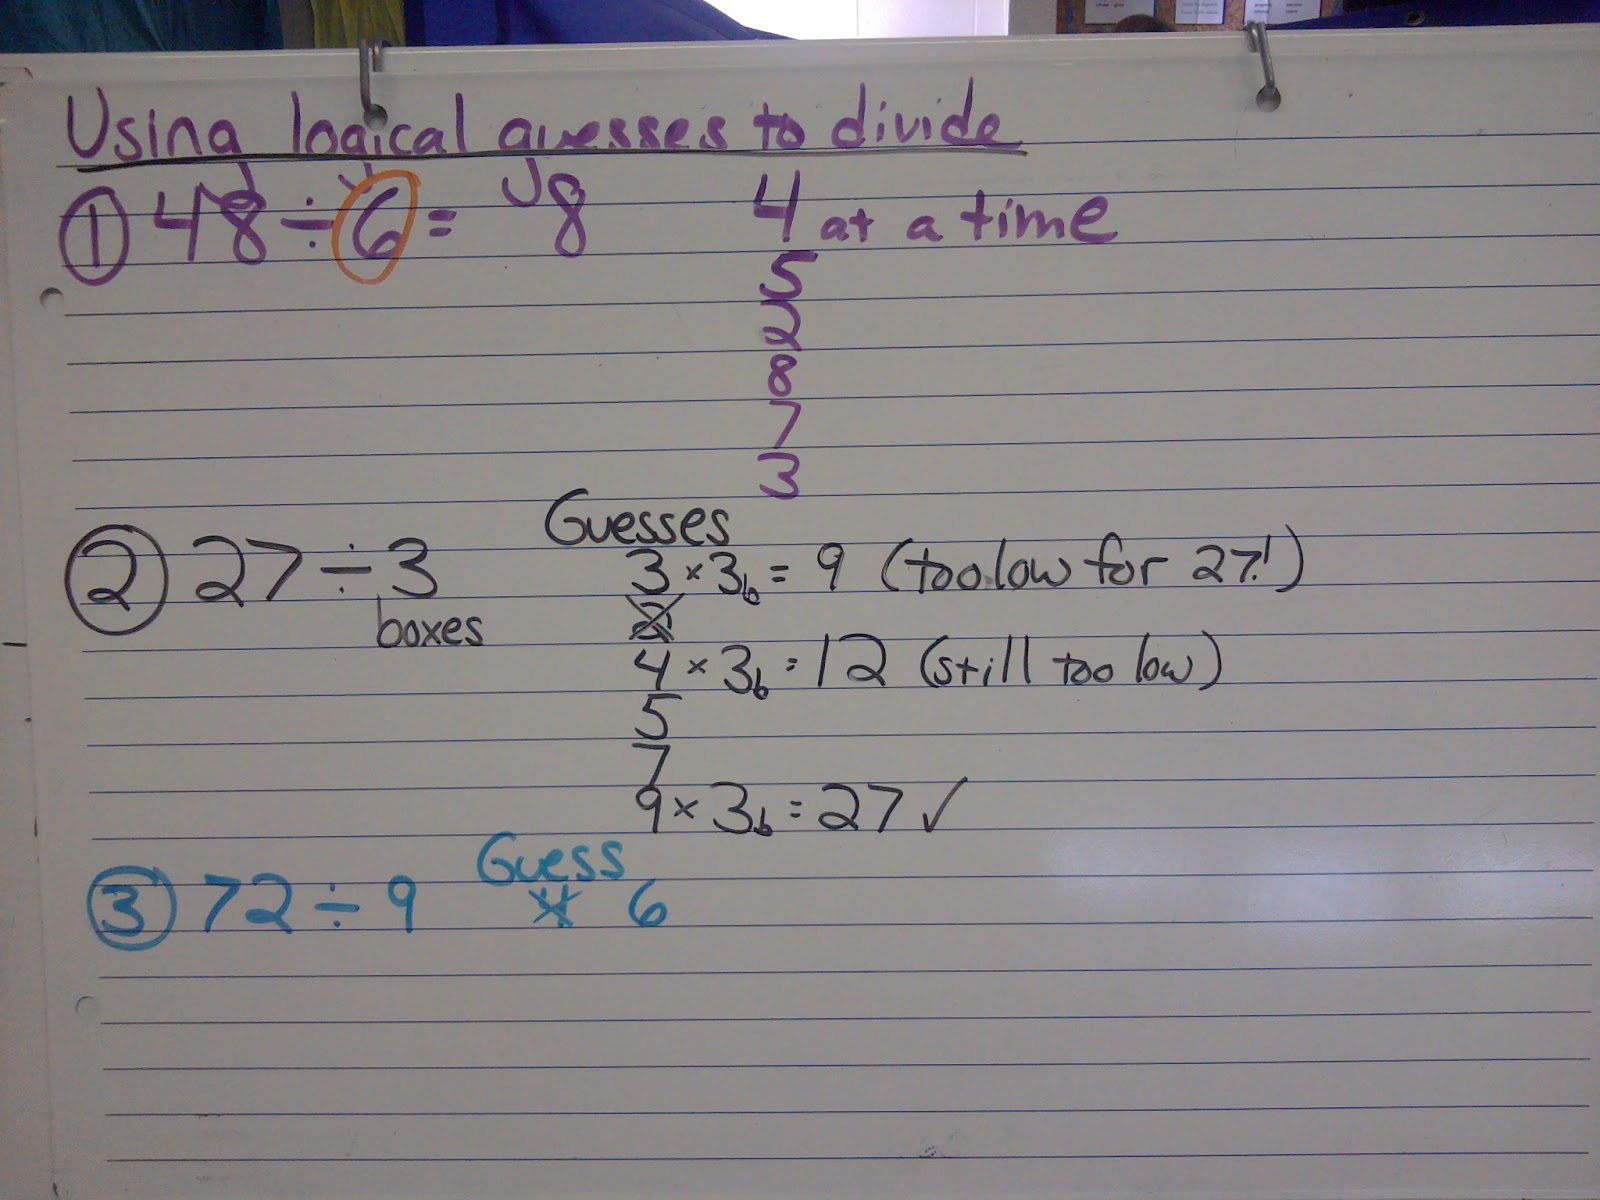 Using logical guesses to divide
① 48 ÷ 6 = 8 4 at a time
5
2
8
7
3
② 27 ÷ 3 Guesses
boxes 3 × 3b = 9 (too low for 27!)
2
4 × 3b = 12 (still too low)
5
7
9 × 3b = 27 ✓
③ 72 ÷ 9 Guess
6